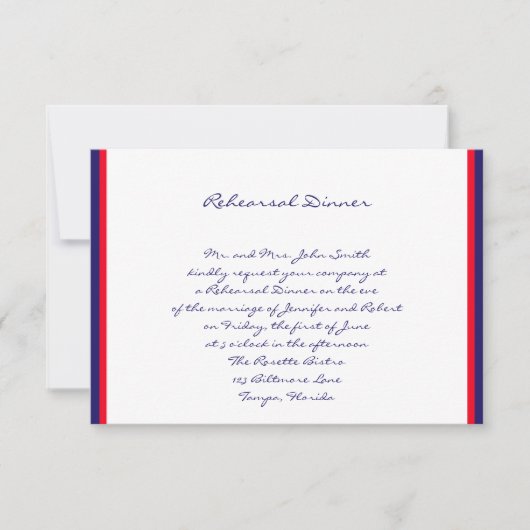 Rehearsal Dinner
Mr. and Mrs. John Smith
kindly request your company at
a Rehearsal Dinner on the eve
of the marriage of Jennifer and Robert
on Friday, the first of June
at 5 o'clock in the afternoon
The Rosette Bistro
123 Biltmore Lane
Tampa, Florida